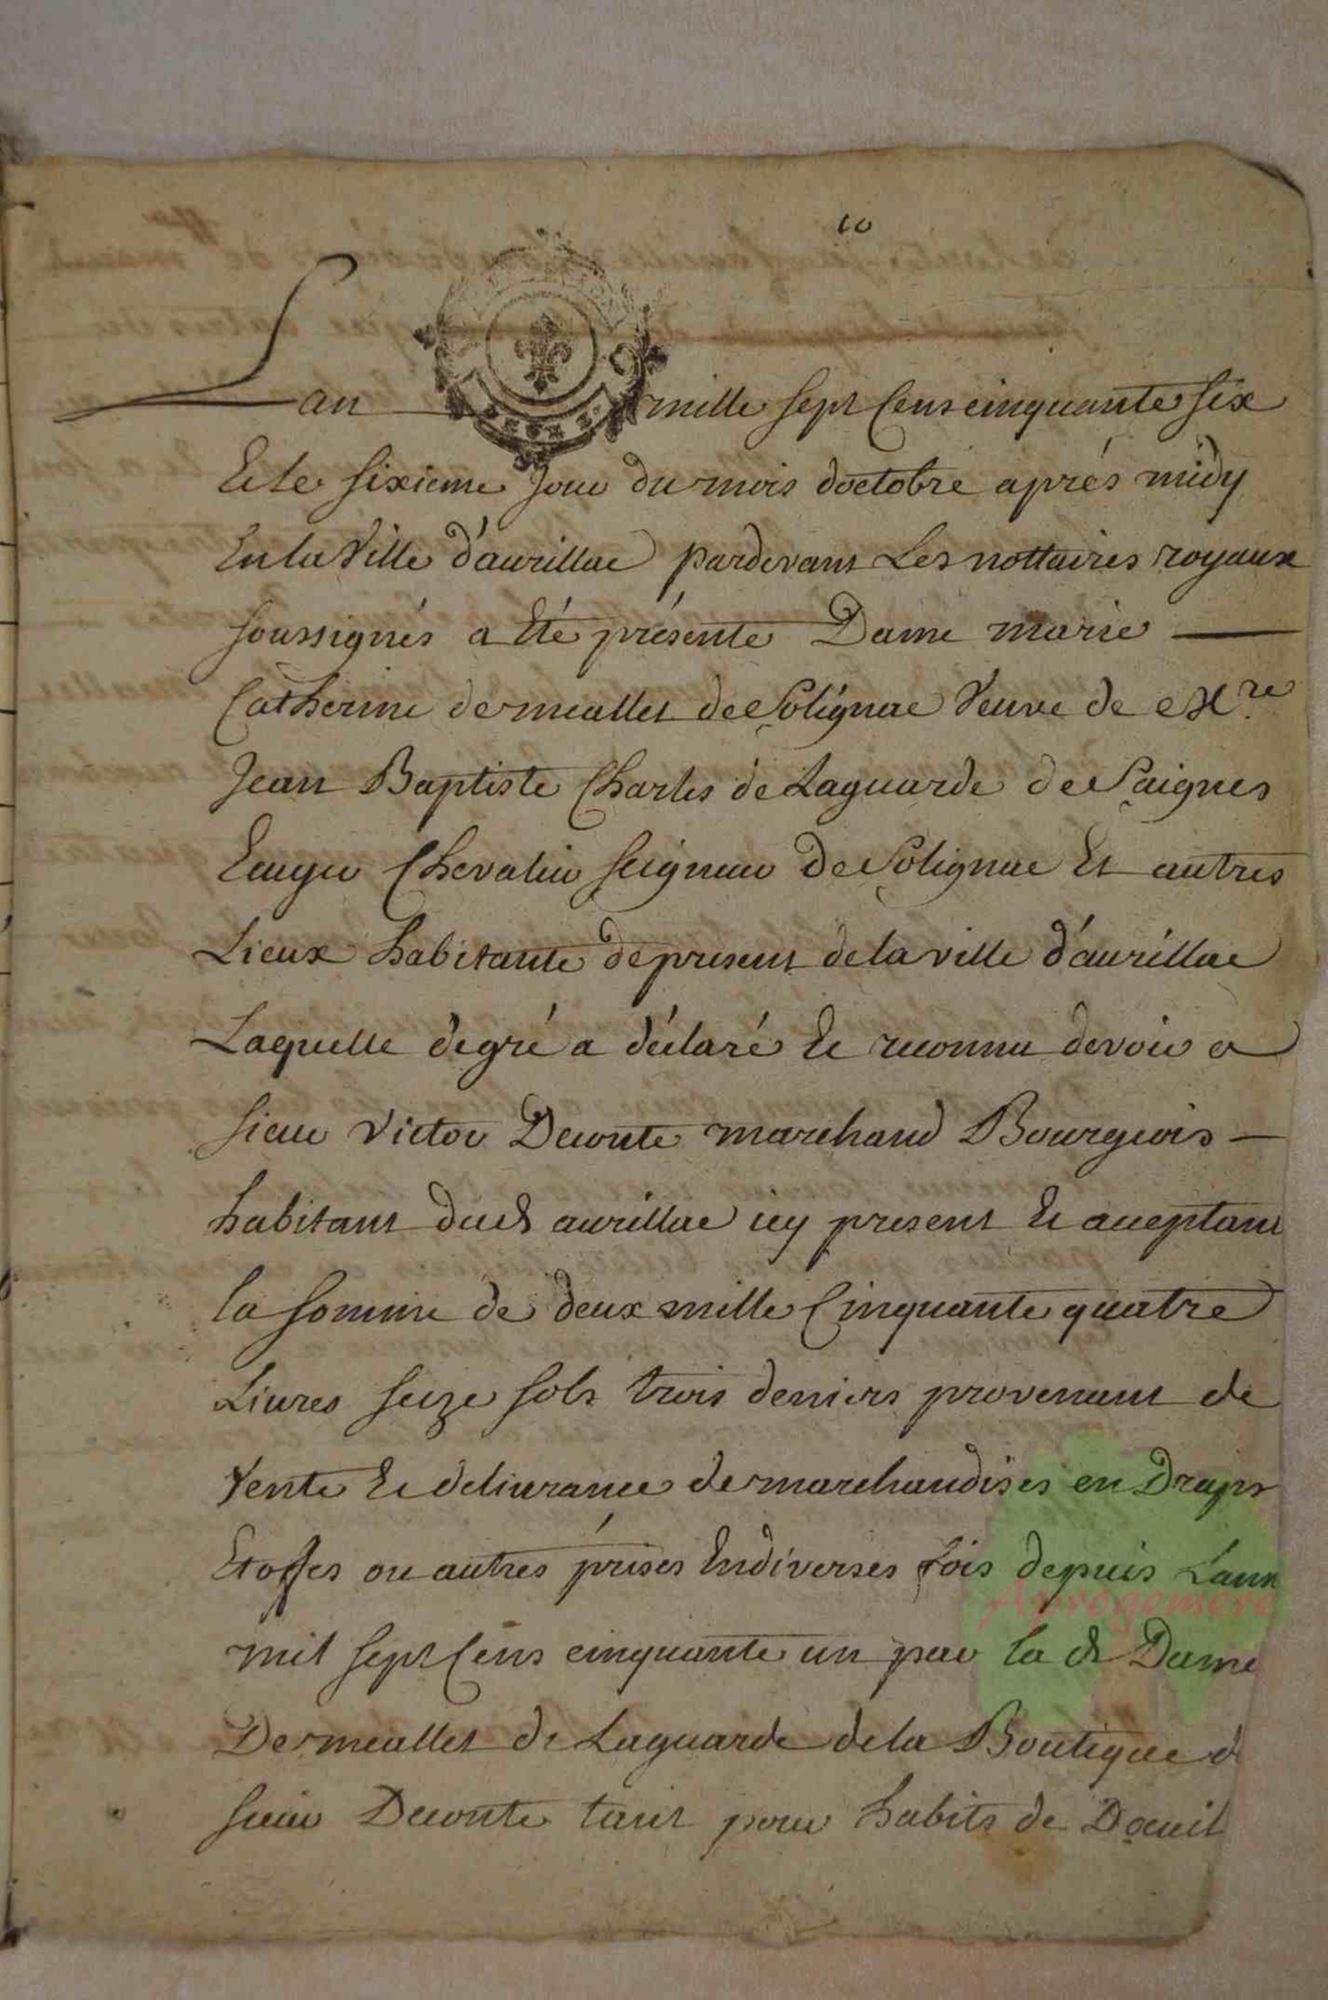 10
Lan mille sept Cens cinquante six
Et le sixieme jour du mois doctobre aprés midy
En la Ville d'aurillac pardevant Les nottaires royaux
soussignés a Eté présente Dame marie
Catherine dermeallet de Solignac Veuve de Mre
Jean Baptiste Charles de Laguarde de Saignes
Chevalier seigneur de Solignac Et autres
Lieux habitante de present de la ville d'aurillac
Laquelle de gré a déclaré Et reconnu devoir a
sieur Victor Deconte marchand Bourgeois
habitant dud aurillac icy present Et acceptant
la somme de deux mille Cinquante quatre
Livres seize sols trois deniers provenant de
Vente Et delivrance de marchandises en Draps
Etoffes ou autres prises En diverses fois depuis Lann
mil sept Cens cinquante un par la de Dame
Dermeallet de Laguarde de la Boutique d
sieur Deconte tant pour habits de Doeuil
Aprogemere